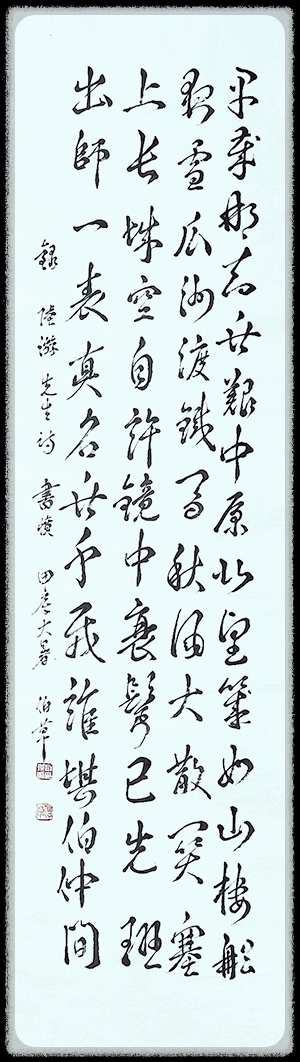 早歲那知世艱中原北望氣如山樓船
夜雪瓜洲渡鐵馬秋風大散關塞
上長城空自許鏡中衰鬢已先斑
出師一表真名世千載誰堪伯仲間
錄 陸游先生詩 書憤 甲辰大暑 伯